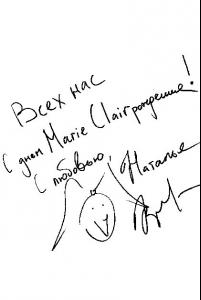 Всех нас
С днем Marie Claire рождения!
С любовью,
Наталья